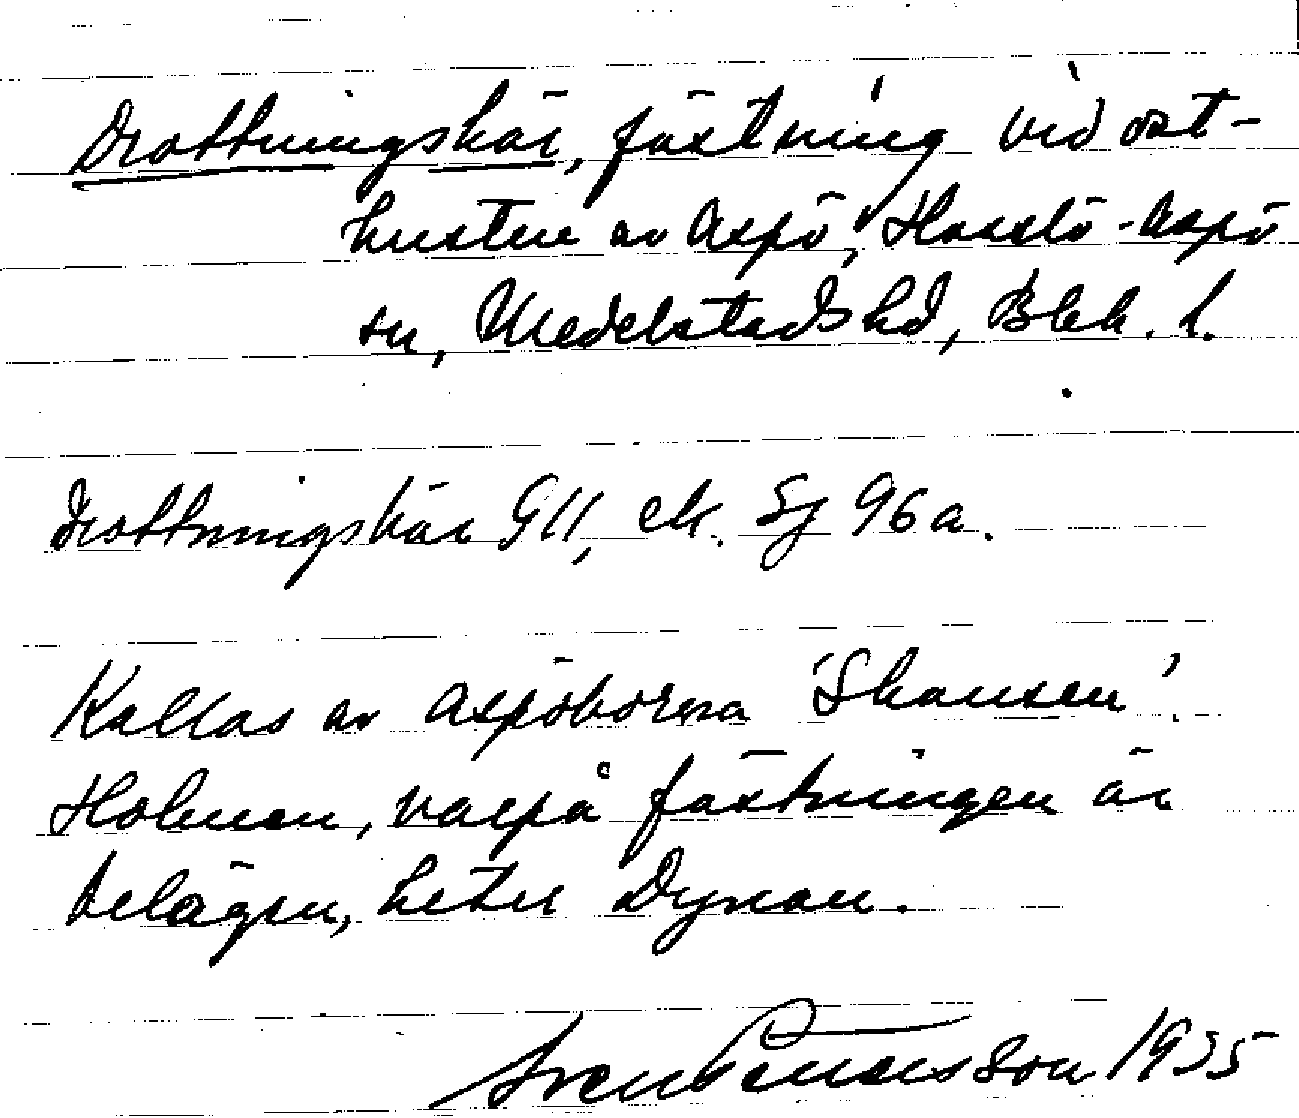 Drottningskär, fästning vid ost-
kusten av Aspö, Hasslö-Aspö
sn, Medelstads hd, Blek. l.
Drottningskär G11, ek. Sj 96a.
Kallas av Aspöborna 'Skansen'.
Holmen, varpå fästningen är
belägen, heter Dynan.
Sven Benson 1935